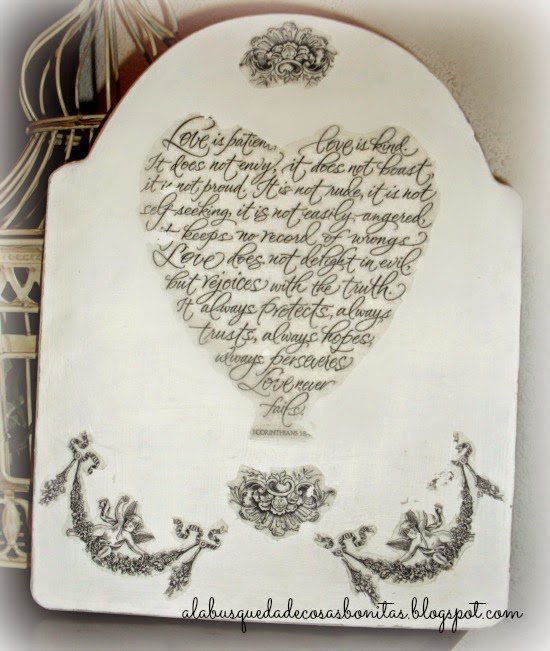 Love is patient, love is kind.
It does not envy, it does not boast,
it is not proud. It is not rude, it is not
self-seeking, it is not easily angered,
it keeps no record of wrongs
Love does not delight in evil
but rejoices with the truth.
It always protects, always
trusts, always hopes,
always perseveres
Love never
fails.
CORINTHIANS
alabusquedadecosasbonitas.blogspot.com